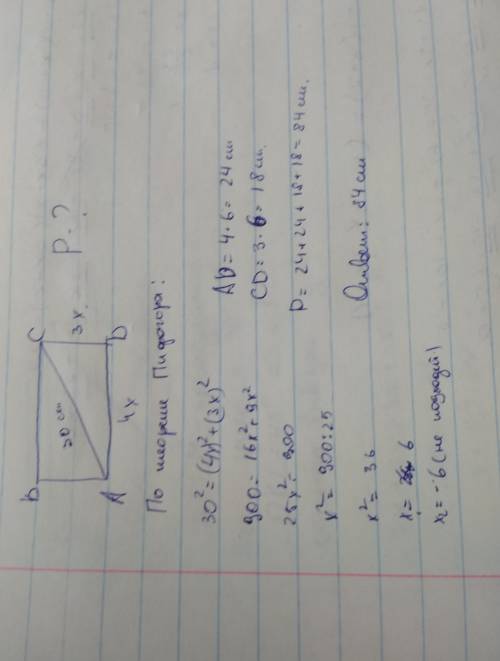 B C
30 cm
3x
P-?
A 4x D
По теореме Пифагора:
30² = (4x)² + (3x)²
900 = 16x² + 9x²
25x² = 900
x² = 900:25
x² = 36
x = 6
x₂ = -6 (не подходит)
AD = 4·6 = 24 см
CD = 3·6 = 18 см.
P = 24+24+18+18 = 84 см.
Ответ: 84 см